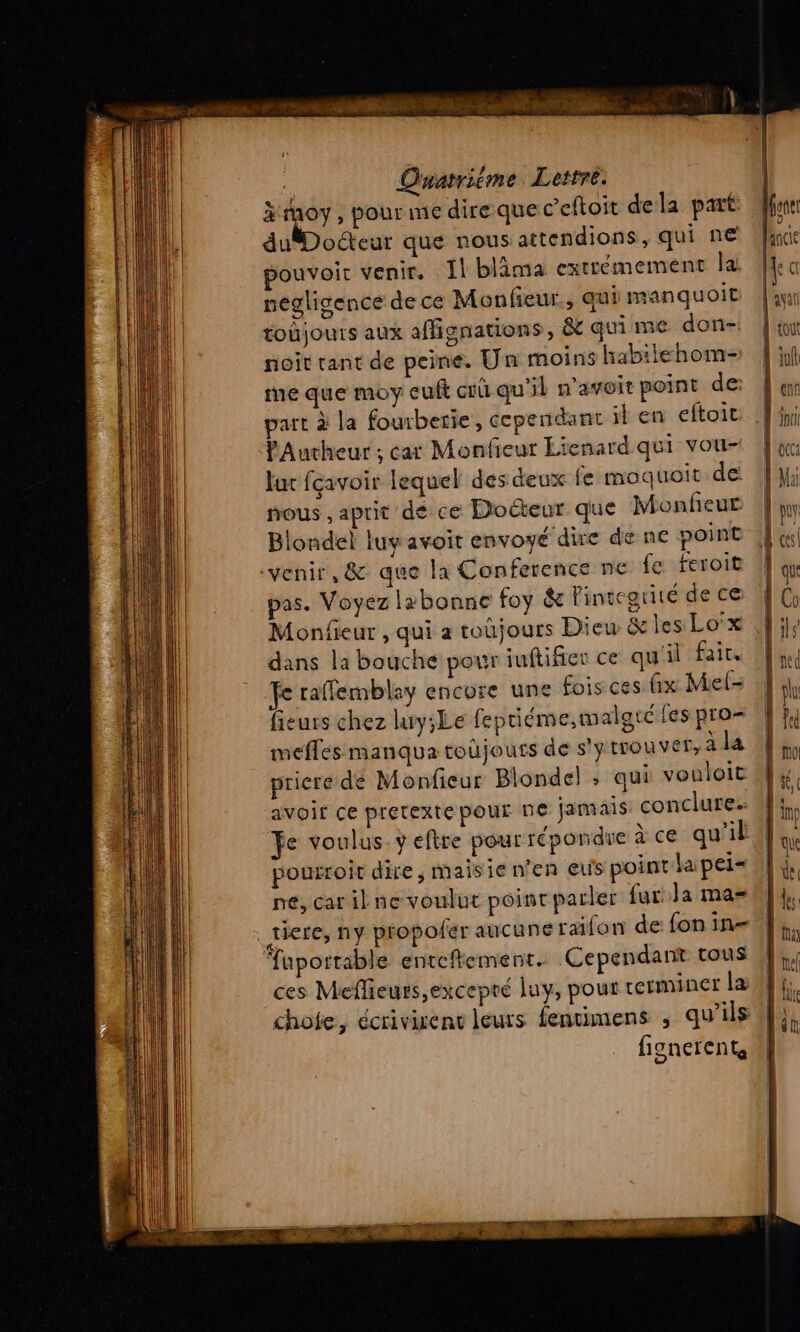 Quatriéme Lettre.
à moy, pour me dire que c'eſtoit de la part
du Docteur que nous attendions, qui ne
pouvoit venir. Il blâma extrémement la
negligence de ce Monſieur, qui manquoit
toûjours aux aſſignations, & qui me don-
noit tant de peine. Un moins habile hom-
me que moy euſt crû qu'il n'avoit point de
part à la fourberie, cependant il en eſtoit
l'Autheur; car Monſieur Lienard qui vou-
lut ſçavoir lequel des deux ſe moquoit de
nous, aprit de ce Docteur que Monſieur
Blondel luy avoit envoyé dire de ne point
venir, & que la Conference ne ſe feroit
pas. Voyez la bonne foy & l'integrité de ce
Monſieur, qui a toûjours Dieu & les Lo'x
dans la bouche pour iuſtifier ce qu'il fait.
Je raſſemblay encore une fois ces ſix Meſ-
ſieurs chez luy; Le ſeptiéme, malgré ſes pro-
meſſes manqua toûjours de s'y trouver, à la
priere de Monſieur Blondel; qui vouloit
avoir ce pretexte pour ne jamais conclure.
Je voulus y eſtre pour répondre à ce qu'il
pourroit dire, mais ie n'en eus point la pei-
ne, car il ne voulut point parler ſur la ma-
tiere, ny propoſer aucune raiſon de ſon in-
ſuportable enteſtement. Cependant tous
ces Meſſieurs, excepté luy, pour terminer la
choſe, écrivirent leurs ſentimens, qu'ils
ſignerent,